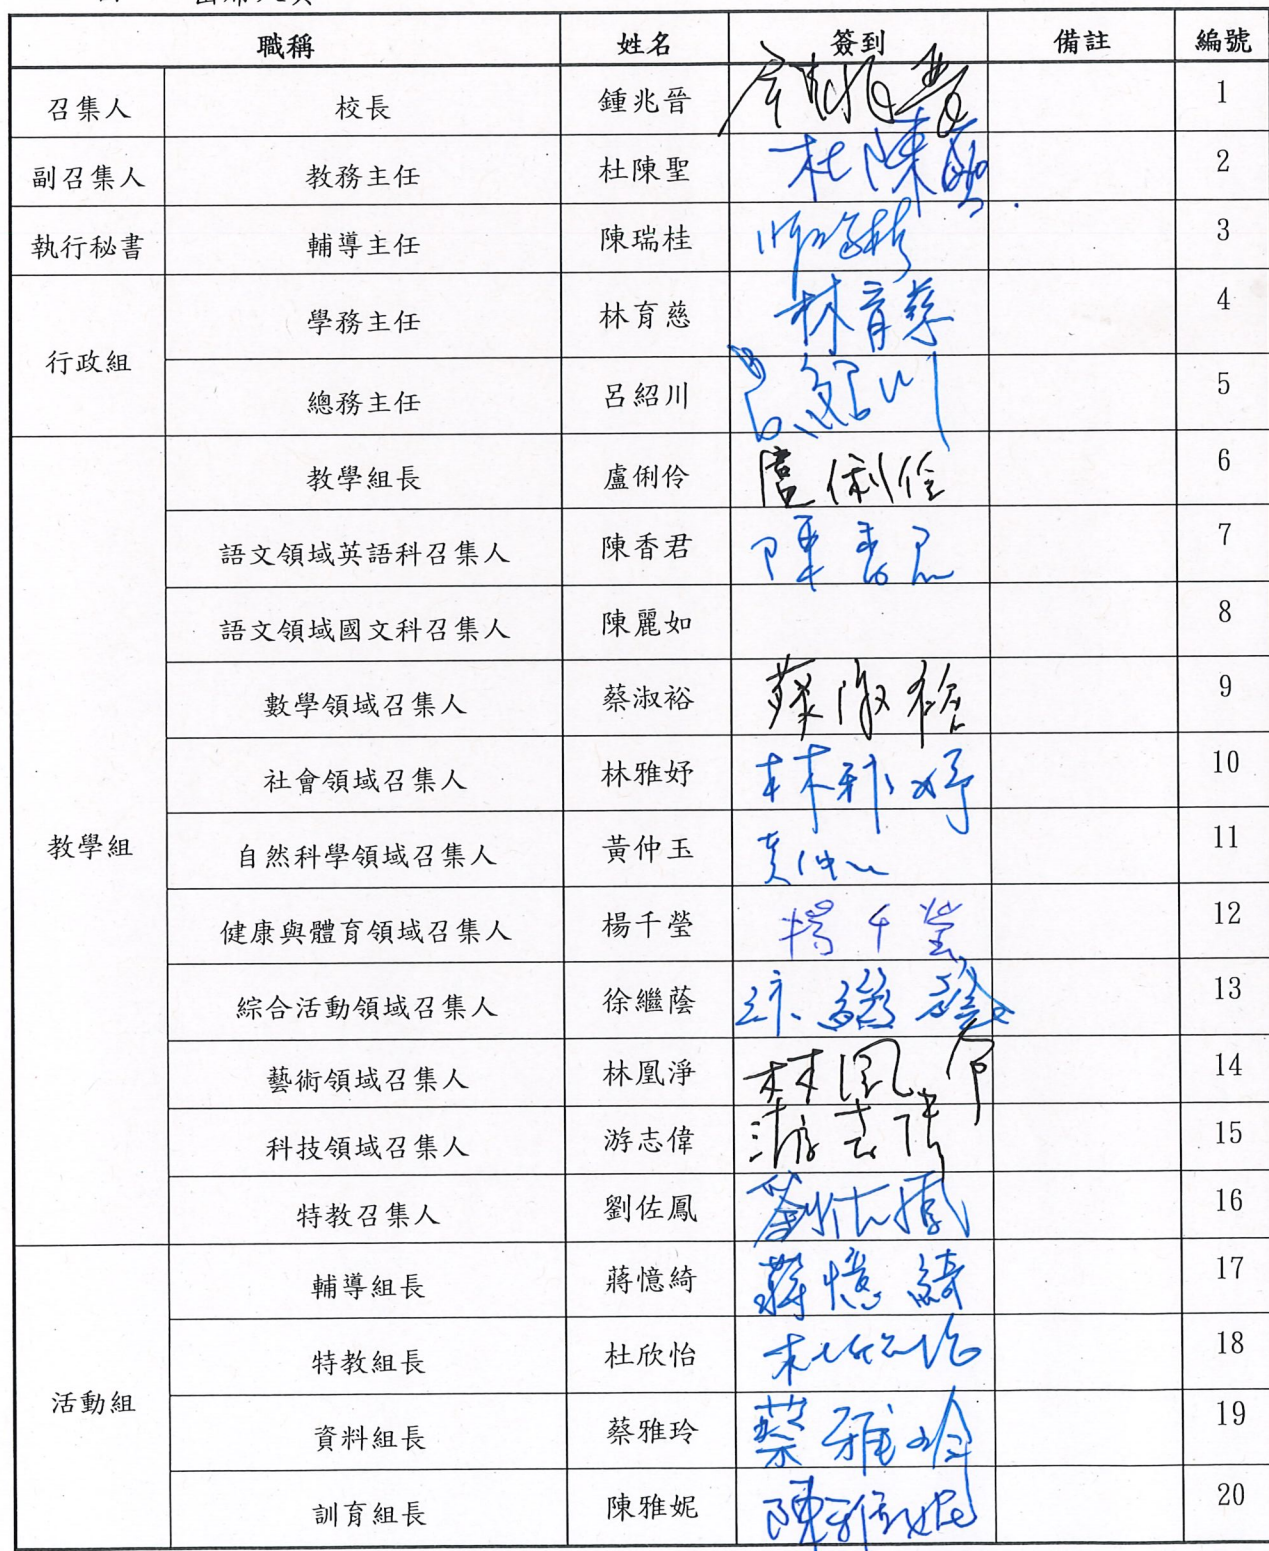 職稱 姓名 簽到 備註 編號
召集人 校長 鍾兆晉 1
副召集人 教務主任 杜陳聖 杜陳聖 2
執行秘書 輔導主任 陳瑞桂 3
行政組 學務主任 林育慈 林育慈 4
總務主任 呂紹川 呂紹川 5
教學組 教學組長 盧俐伶 盧俐伶 6
語文領域英語科召集人 陳香君 陳香君 7
語文領域國文科召集人 陳麗如 8
數學領域召集人 蔡淑裕 蔡淑裕 9
社會領域召集人 林雅妤 林雅妤 10
自然科學領域召集人 黃仲玉 黃仲玉 11
健康與體育領域召集人 楊千瑩 楊千瑩 12
綜合活動領域召集人 徐繼蔭 徐繼蔭 13
藝術領域召集人 林凰淨 14
科技領域召集人 游志偉 游志偉 15
特教召集人 劉佐鳳 劉佐鳳 16
活動組 輔導組長 蔣憶綺 蔣憶綺 17
特教組長 杜欣怡 杜欣怡 18
資料組長 蔡雅玲 蔡雅玲 19
訓育組長 陳雅妮 陳雅妮 20